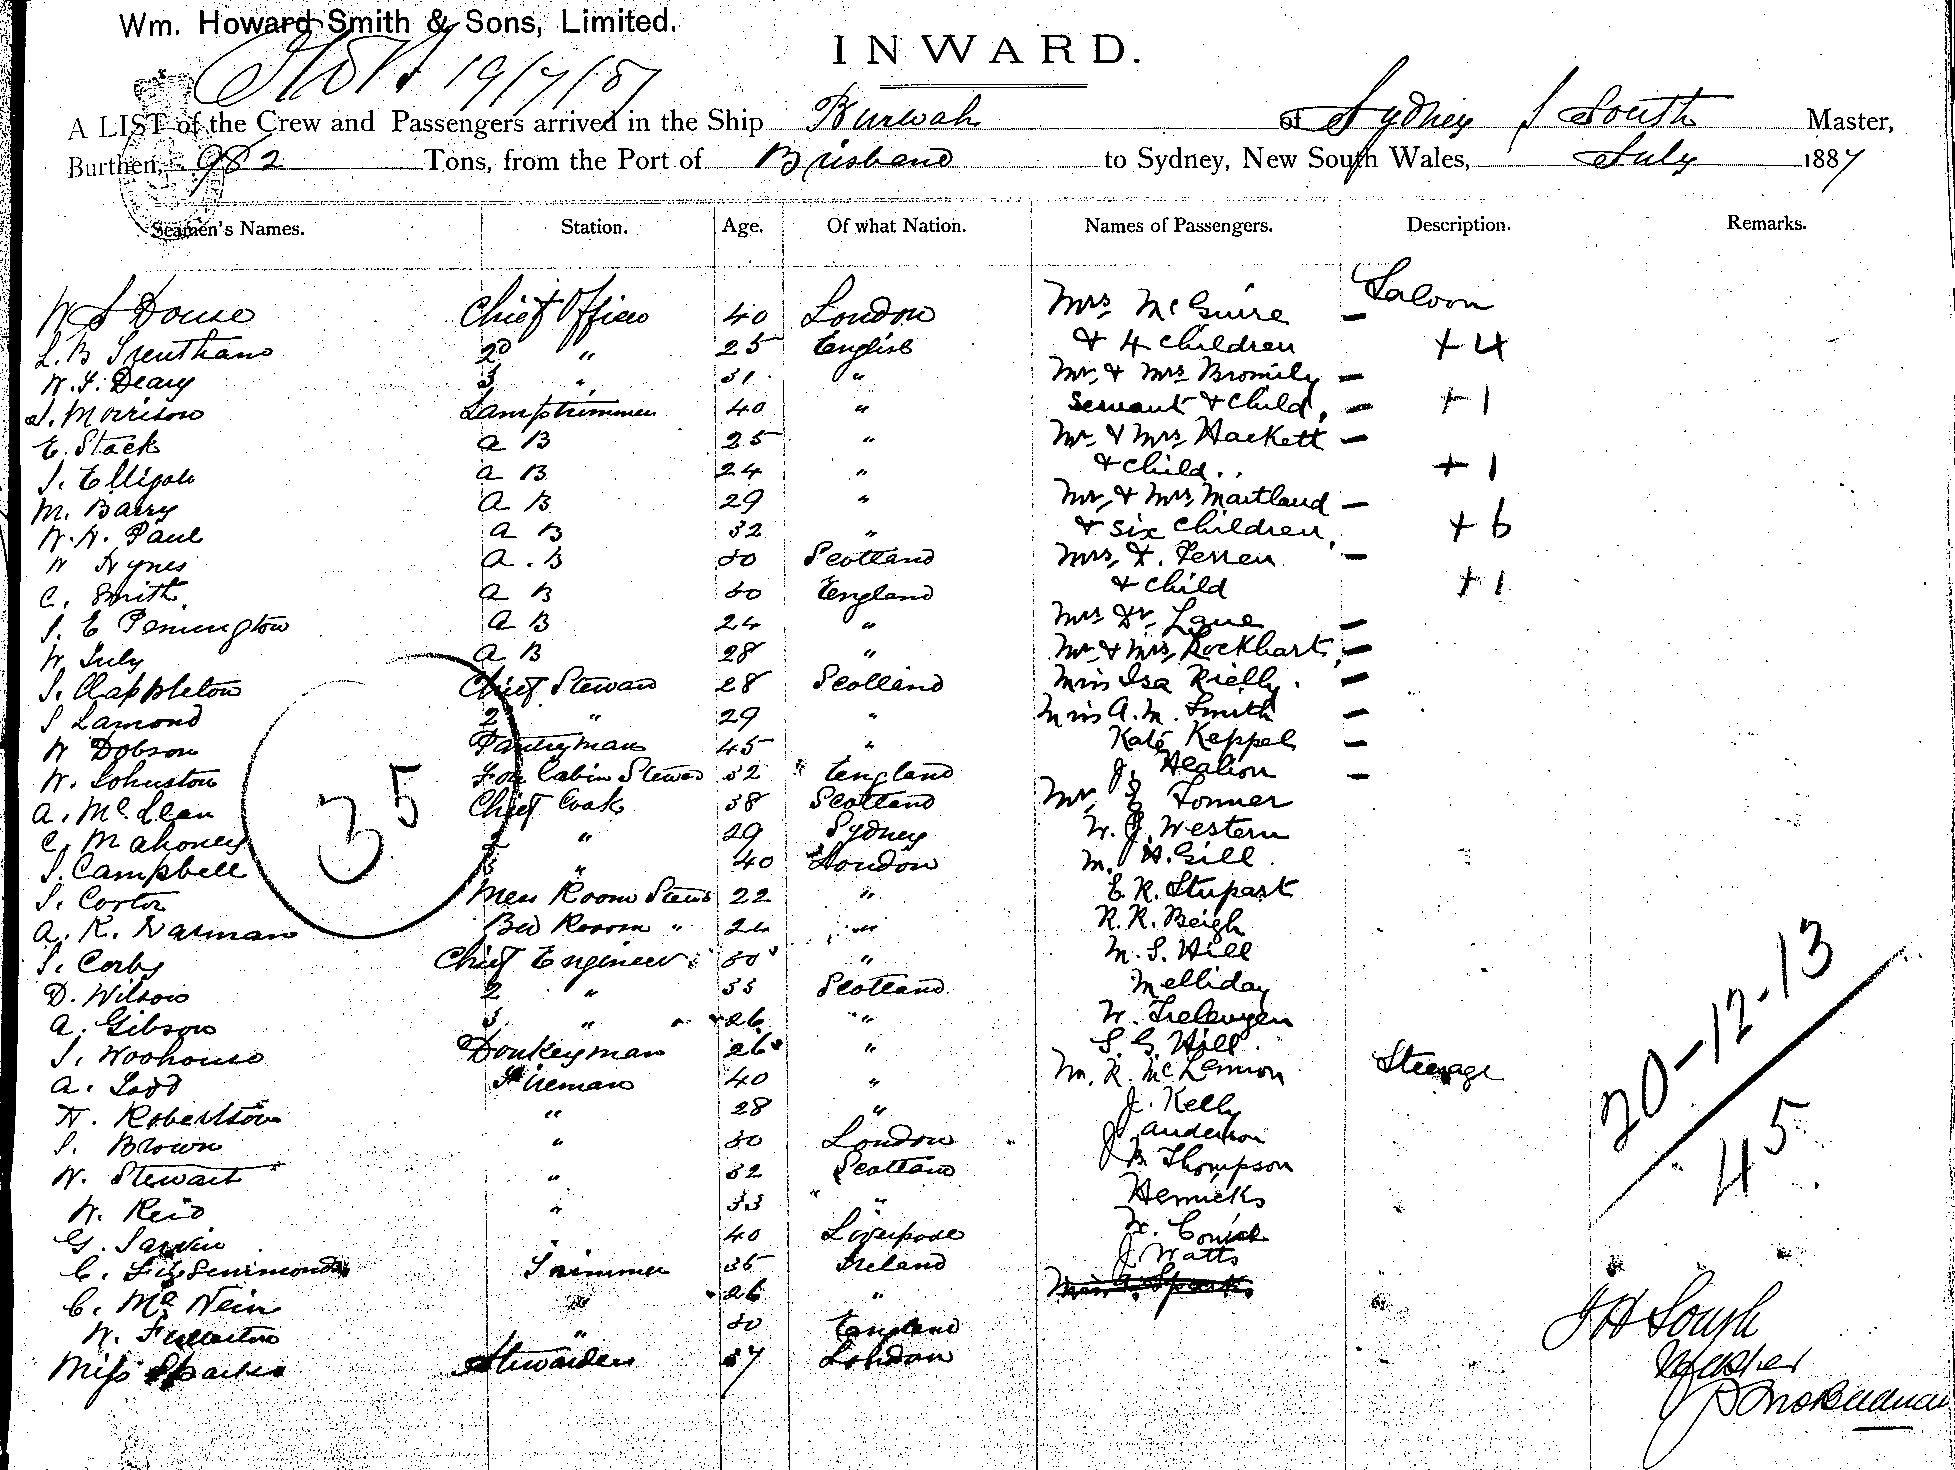 Wm. Howard Smith & Sons, Limited.
19/7/87
INWARD.
A LIST of the Crew and Passengers arrived in the Ship Burwah of Sydney J South Master,
Burthen, 982 Tons, from the Port of Brisbane to Sydney, New South Wales, July 1887
Seamen's Names. Station. Age. Of what Nation. Names of Passengers. Description. Remarks.
W S Douse Chief Officer 40 London Mrs McGuire – Saloon
L. B Trentham 2d " 25 English & 4 children +4
W. J. Deary 3 " 31 " Mr & Mrs Bromily –
J. Morrison Lamptrimmer 40 " Servant & Child, – +1
E. Stack A B 25 " Mr & Mrs Hackett –
J. Elligow A B 24 " & child.. +1
M. Barry A B 29 " Mr & Mrs Martland –
W. H. Paul A B 32 " & six children, +6
W Hynes A.B 30 Scotland Mrs F. Ferren –
C. Smith A B 30 England & child +1
J. E Pennington A B 24 " Mrs Dr Lane –
W. July A B 28 " Mr & Mrs Lockhart –
J. Clappleton Chief Steward 28 Scotland Miss Isa Rielly. –
J Lamond 2 " 29 " Miss A. M. Smith –
W Dobson Pantryman 45 " Kate Keppel –
W. Johnston Fore Cabin Steward 32 England J. Healion –
A. McLean Chief Cook 38 Scotland Mr Tonner
C. Mahoney 2 " 29 Sydney W. J. Western
J. Campbell 3 " 40 London M. H. Gill
J. Corton Mess Room Stewd 22 " E R. Stupart
A. R. Warman Bed Room " 24 " R. R. Beigh
J. Corby Chief Engineer 30 " M. S. Hill
D. Wilson 2 " 33 Scotland Melliday
A. Gibson 3 " 26 " W. Trelevyen
J. Woohouse Donkeyman 26 " S. G. Hill
A. Todd Fireman 40 " M. R. McLennon Steerage
H. Robertson " 28 " J. Kelly
J. Brown " 30 London J Anderson
W. Stewart " 32 Scotland J B Thompson
W. Reid " 33 " Herricks
G. " 40 Liverpool
C. Fitzsimmonds Trimmer 35 Ireland J Watts
C. McNein " 26 "
W. Fullerton " 30 England
Miss Sparks Stewardess 37 London
35
20-12-13
45
Master